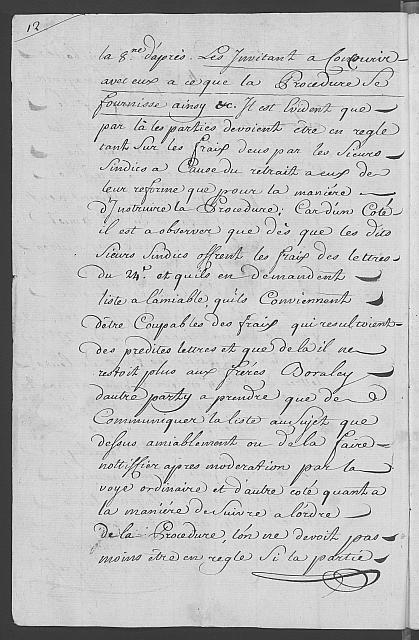 12
la 8.ne d'aprés. Les Invitant a Concourir
avec eux a ce que la Procedure Se
fournisse ainsy &c. Il est Evident que
par là les parties devoient être en regle
tant Sur les fraix deus par les Sieurs
Sindics a Cause du retrait a eux de
leur reforme que pour la maniére
d'Instruire la Procedure; Car d'un Coté
il est a observer que dès que les dits
Sieurs Sindics offrent les fraix des lettres
du 24.e et qu'ils en demandent
liste a l'amiable, qu'ils Conviennent
d'être Coupables des fraix qui resultoient
des predites lettres et que de la il ne
restoit plus aux fréres Doraley
d'autre party a prendre que de
Communiquer la liste au Sujet que
dessus amiablement ou de la faire
nottiffier apres moderation par la
voye ordinaire et d'autre coté quant a
la maniére de Suivre a l'ordre
de la Procedure, l'on ne devoit pas
moins être en regle Si la partie